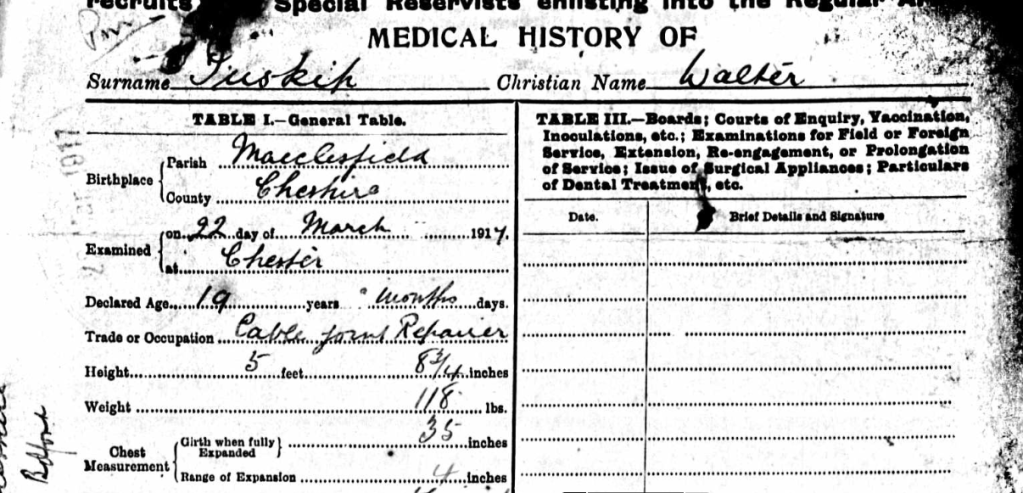 recruits Special Reservists enlisting into the Regular
MEDICAL HISTORY OF
Surname Inskip Christian Name Walter
TABLE I.—General Table.
Birthplace Parish Macclesfield
County Cheshire
Examined on 22 day of March 1917.
at Chester
Declared Age 19 years months days.
Trade or Occupation Cable joint Repairer
Height 5 feet 8 3/4 inches
Weight 118 lbs.
Chest Measurement Girth when fully Expanded 35 inches
Range of Expansion 4 inches
TABLE III.—Boards; Courts of Enquiry, Vaccination,
Inoculations, etc.; Examinations for Field or Foreign
Service, Extension, Re-engagement, or Prolongation
of Service; Issue of Surgical Appliances; Particulars
of Dental Treatment, etc.
Date. Brief Details and Signature